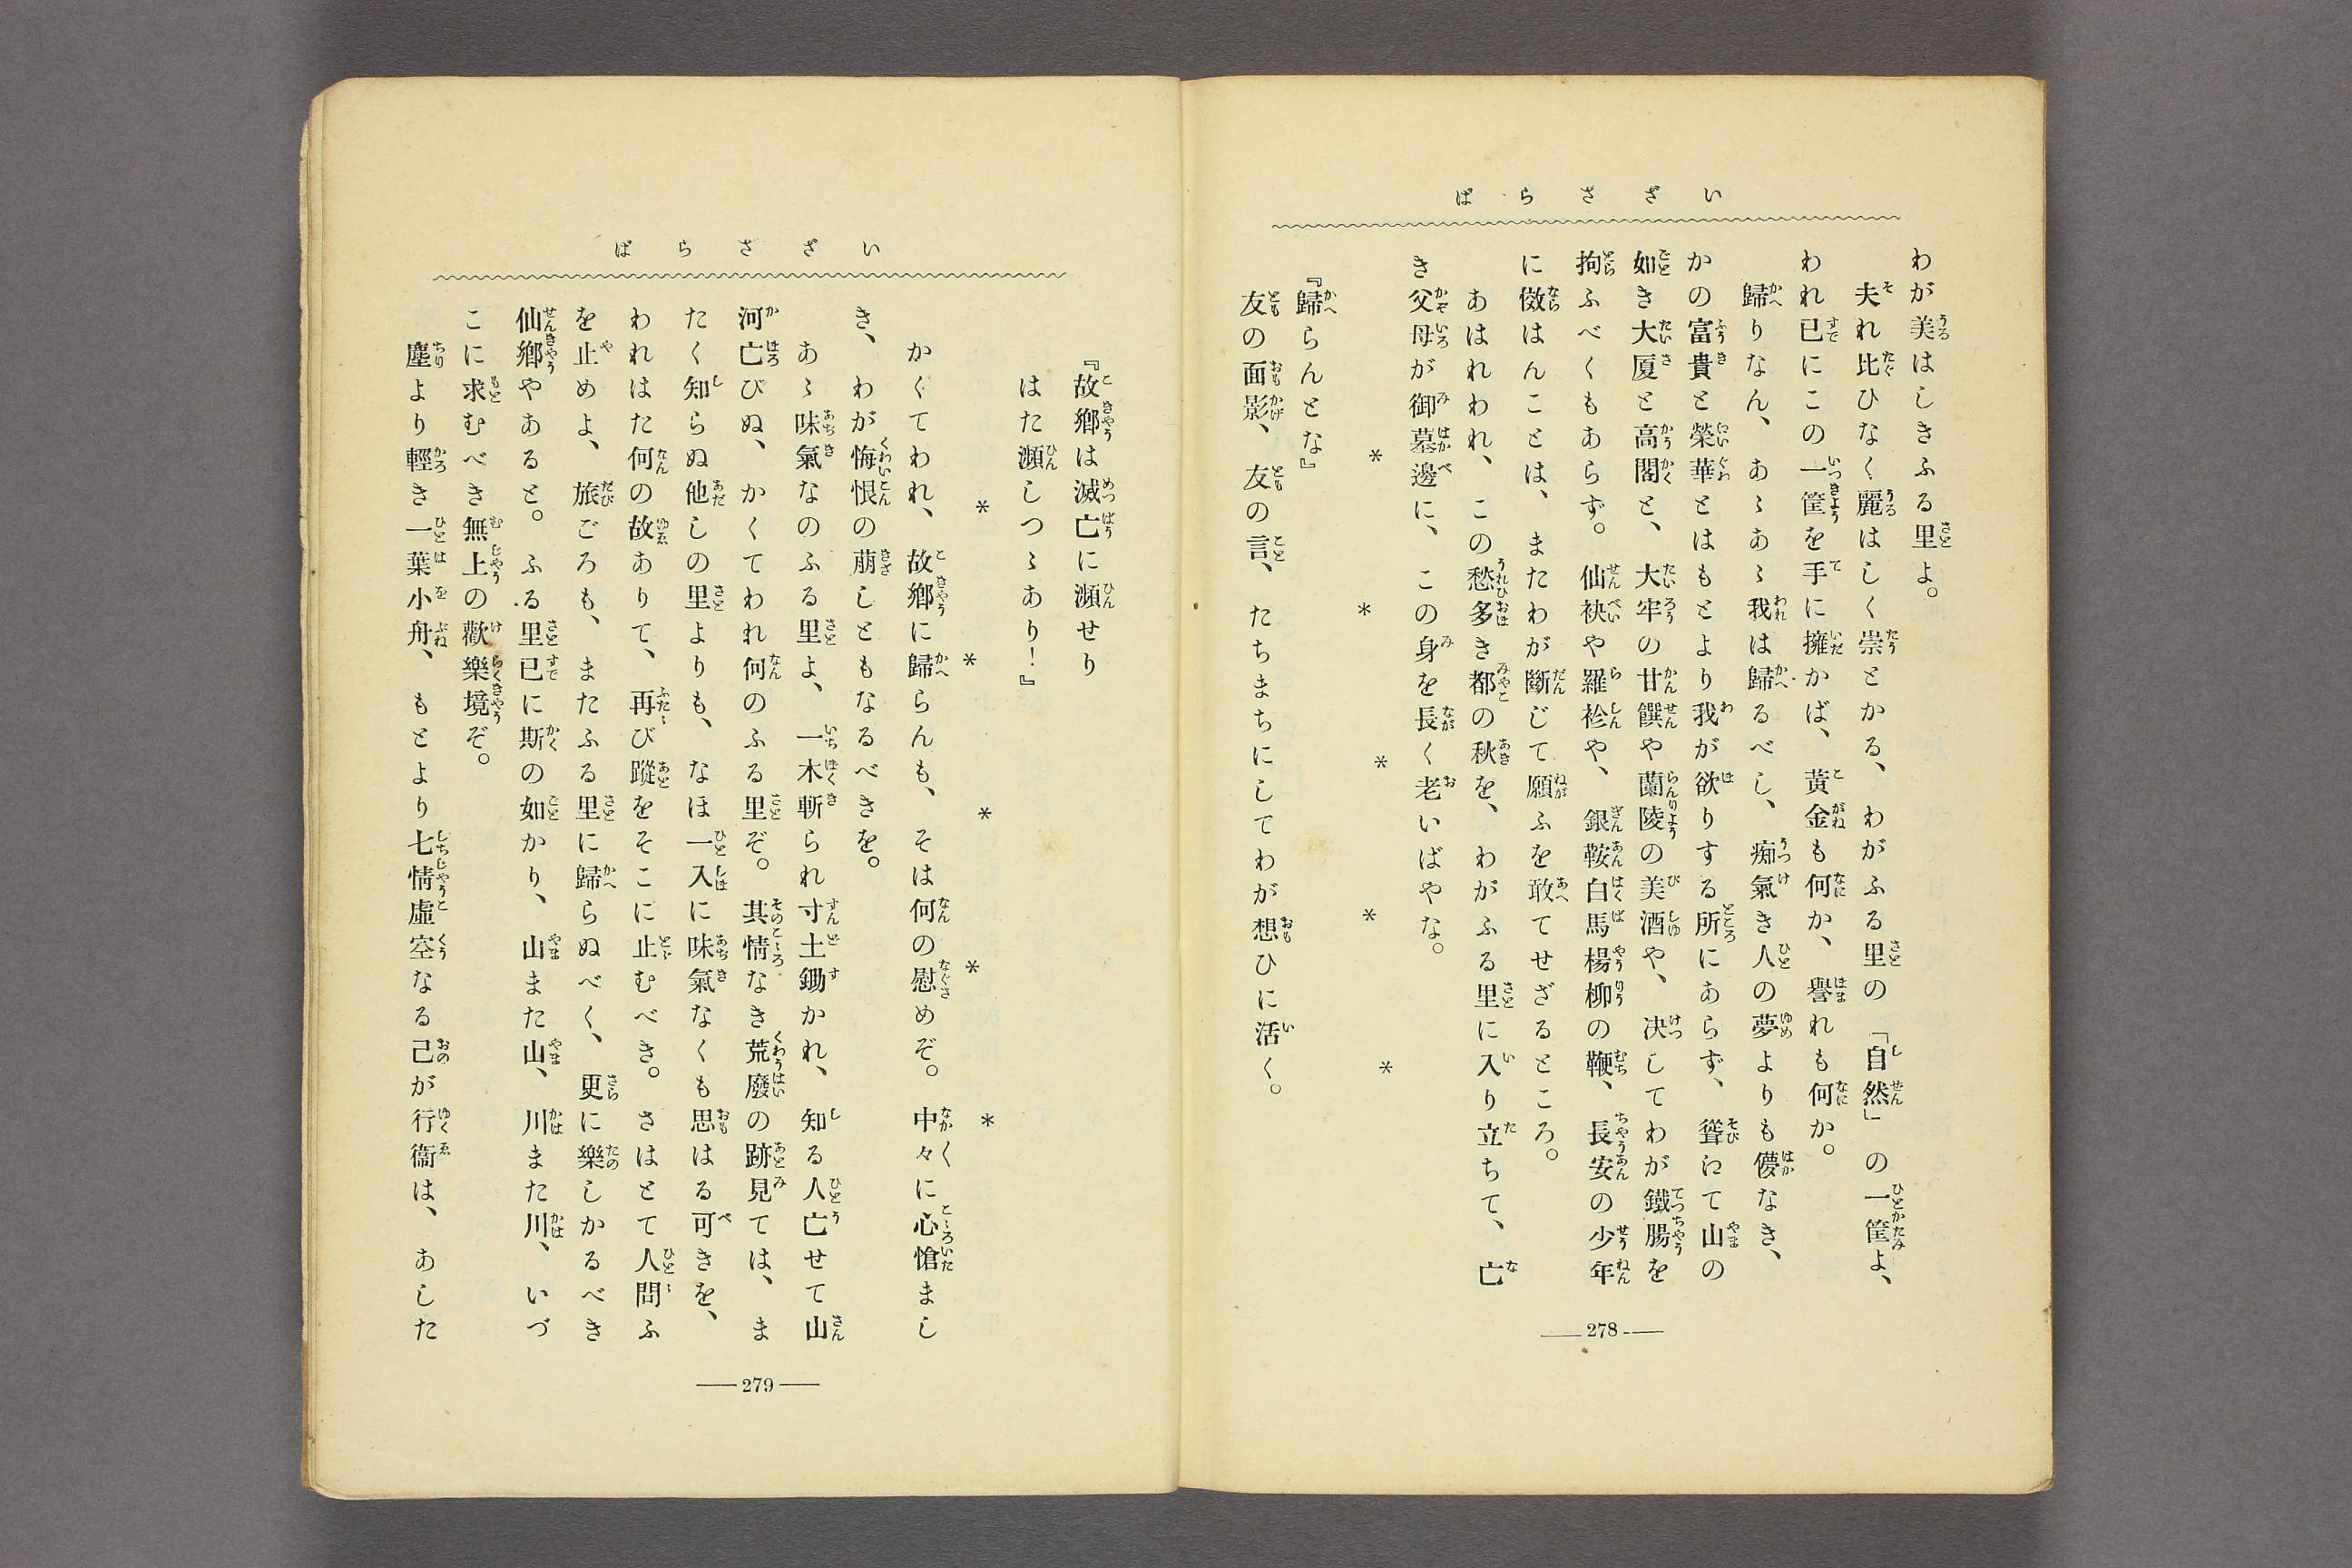 いざさらば
わが美はしきふる里よ。
夫れ比ひなく麗はしく崇とかる、わがふる里の「自然」の一筐よ、
われ已にこの一筐を手に擁かば、黃金も何か、譽れも何か。
歸りなん、あゝあゝ我は歸るべし、痴氣き人の夢よりも儚なき、
かの富貴と榮華とはもとより我が欲りする所にあらず、聳𛀁て山の
如き大厦と高閣と、大牢の甘饌や蘭陵の美酒や、决してわが鐵腸を
拘ふべくもあらず。仙袂や羅袗や、銀鞍白馬楊柳の鞭、長安の少年
に傚はんことは、またわが斷じて願ふを敢てせざるところ。
あはれわれ、この愁多き都の秋を、わがふる里に入り立ちて、亡
き父母が御墓邊に、この身を長く老いばやな。
＊　＊　＊　＊　＊
『歸らんとな』
友の面影、友の言、たちまちにしてわが想ひに活く。
278
いざさらば
『故鄕は滅亡に瀕せり
はた瀕しつゝあり！』
＊　＊　＊　＊　＊
かくてわれ、故鄕に歸らんも、そは何の慰めぞ。中々に心愴まし
き、わが悔恨の萠しともなるべきを。
あゝ味氣なのふる里よ、一木斬られ寸土鋤かれ、知る人亡せて山
河亡びぬ、かくてわれ何のふる里ぞ。其情なき荒廢の跡見ては、ま
たく知らぬ他しの里よりも、なほ一入に味氣なくも思はる可きを、
われはた何の故ありて、再び蹤をそこに止むべき。さはとて人問ふ
を止めよ、旅ごろも、またふる里に歸らぬべく、更に樂しかるべき
仙鄕やあると。ふる里已に斯の如かり、山また山、川また川、いづ
こに求むべき無上の歡樂境ぞ。
塵より輕き一葉小舟、もとより七情虛空なる己が行衞は、あした
279